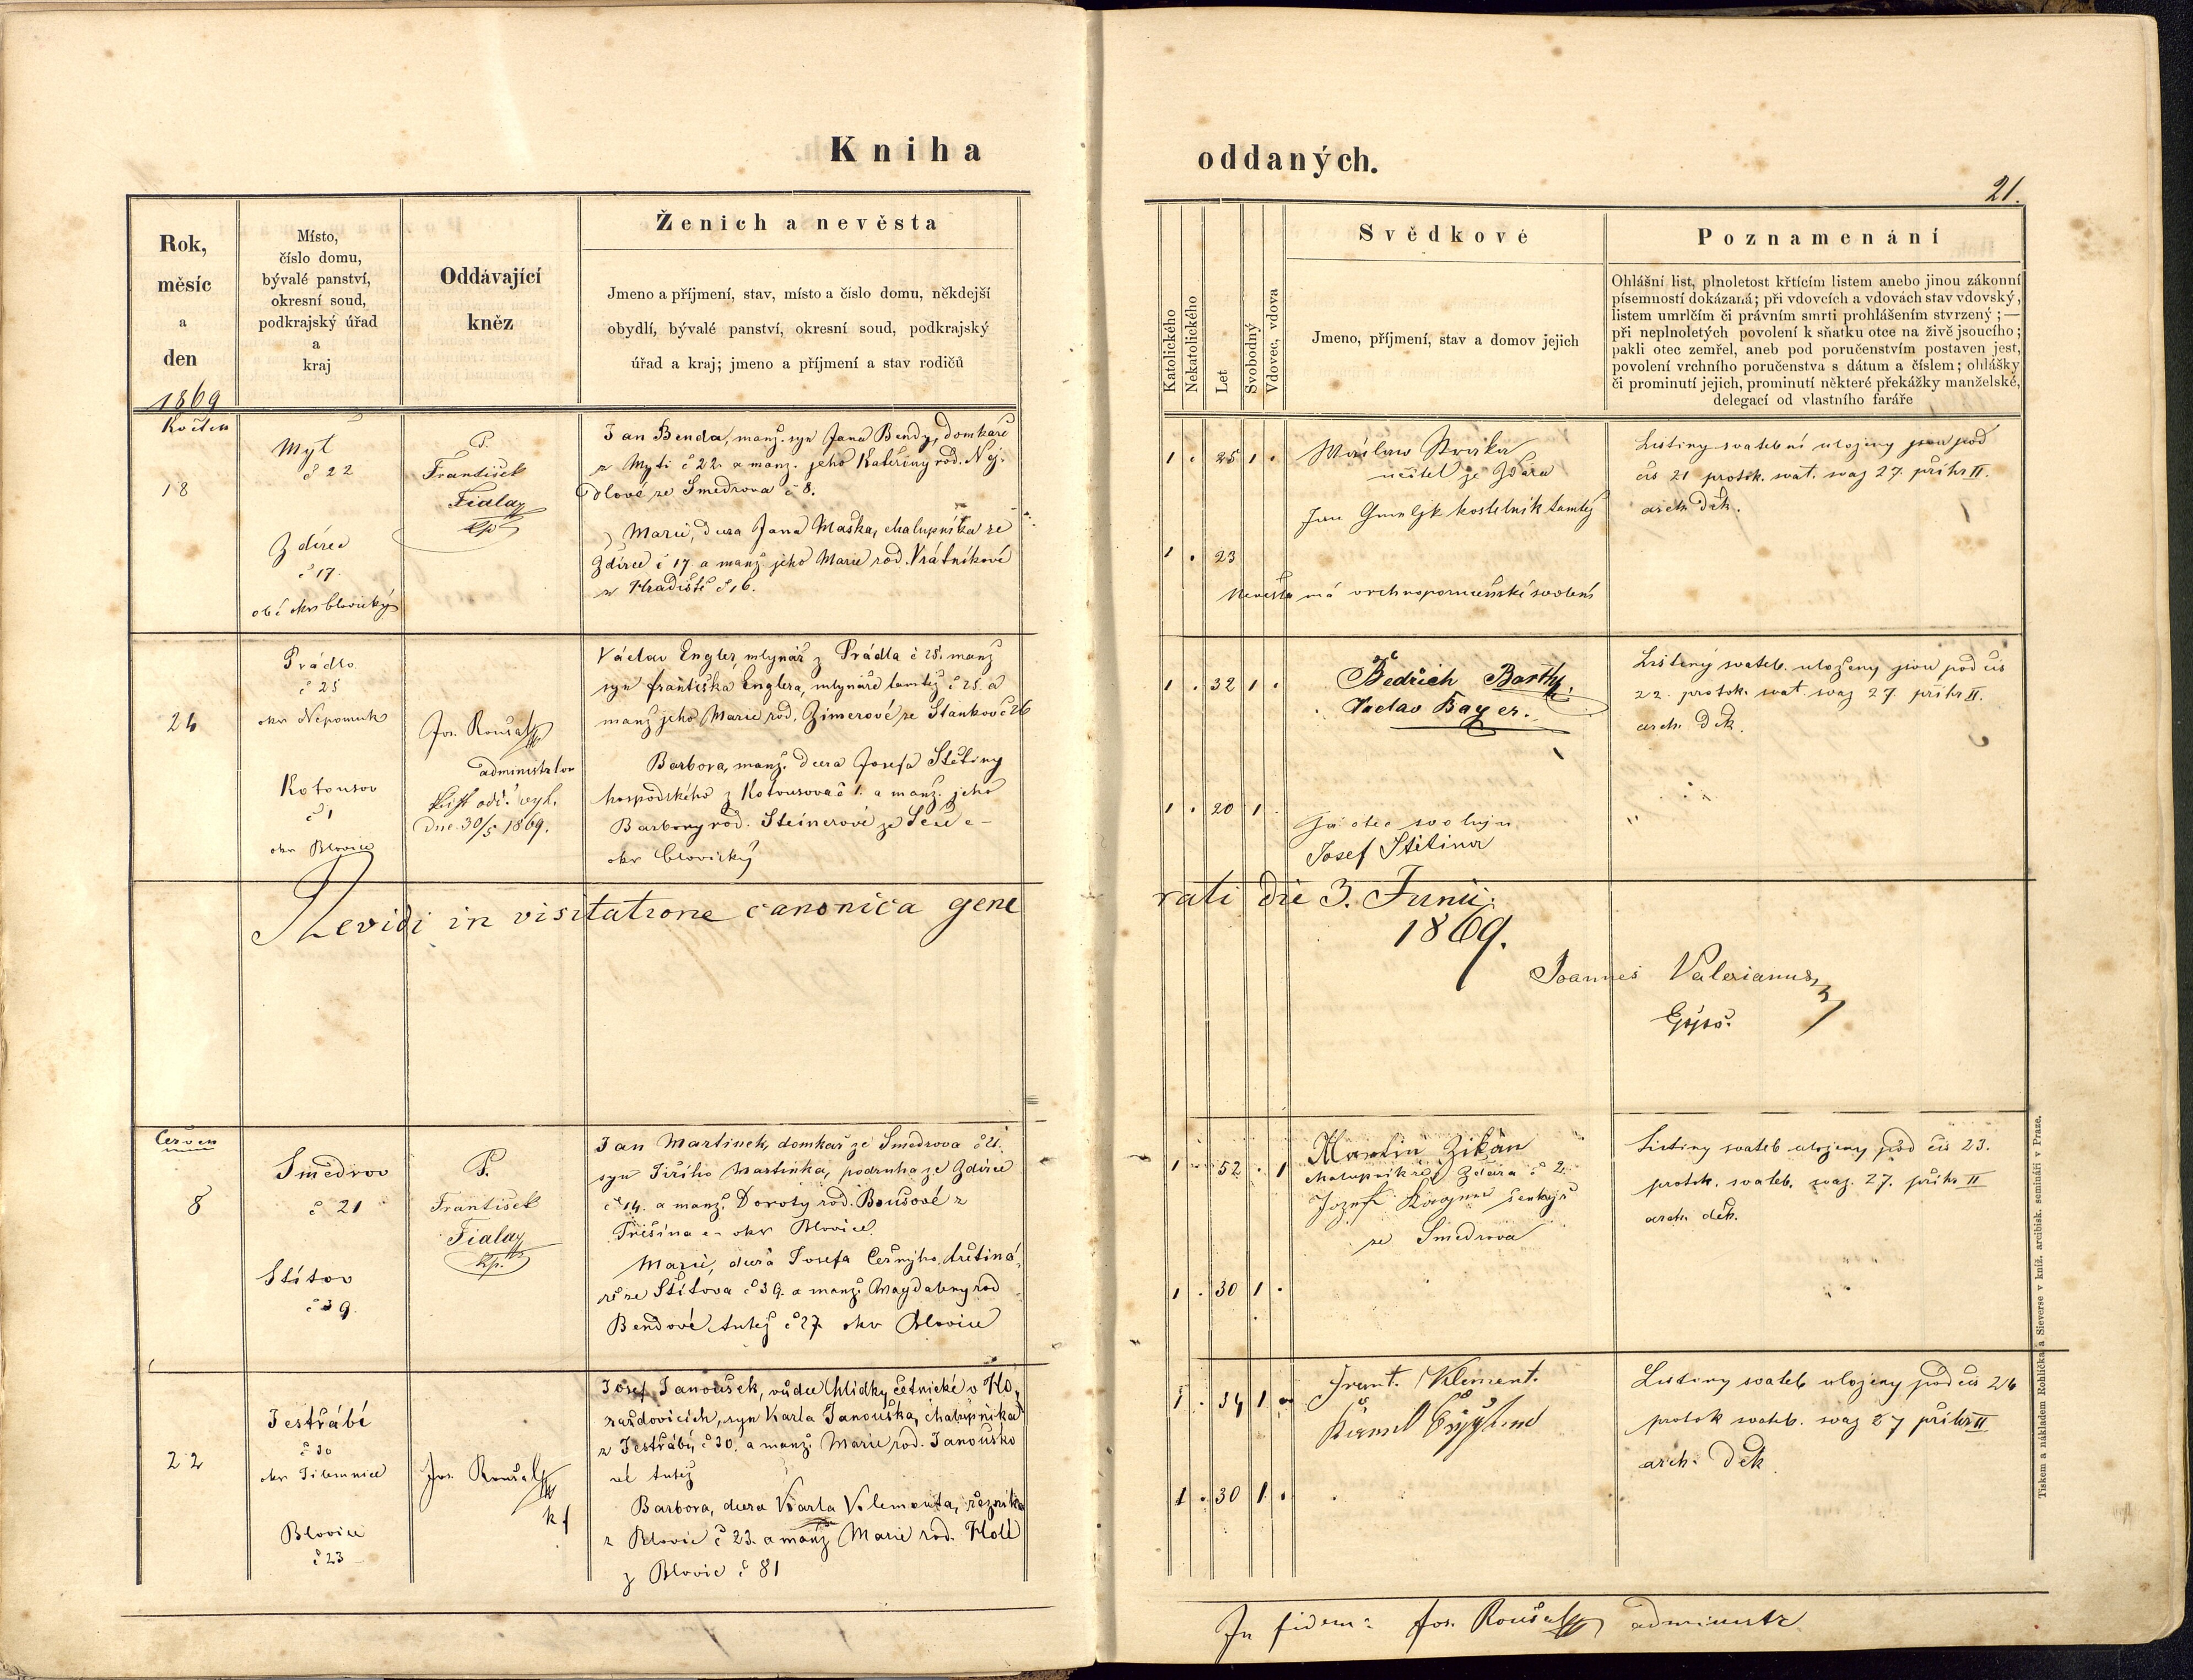 Kniha oddaných.
21.
Rok,
měsíc
a
den
1869
Místo,
číslo domu,
bývalé panství,
okresní soud,
podkrajský úřad
a
kraj
Oddávající
kněz
Ženich a nevěsta
Jmeno a příjmení, stav, místo a číslo domu, někdejší
obydlí, bývalé panství, okresní soud, podkrajský
úřad a kraj; jmeno a příjmení a stav rodičů
Katolického
Nekatolického
Let
Svobodný
Vdovec, vdova
Svědkové
Jmeno, příjmení, stav a domov jejich
Poznamenání
Ohlášní list, plnoletost křtícím listem anebo jinou zákonní
písemností dokázaná; při vdovcích a vdovách stav vdovský,
listem umrlčím či právním smrti prohlášením stvrzený; —
při neplnoletých povolení k sňatku otce na živě jsoucího;
pakli otec zemřel, aneb pod poručenstvím postaven jest,
povolení vrchního poručenstva s dátum a číslem; ohlášky
či prominutí jejich, prominutí některé překážky manželské,
delegací od vlastního faráře
Květen
18
Myt
č 22
Zdírec
č 17.
obě okr blovický
P.
František
Fiala
kp
Jan Benda, manž. syn Jana Bendy, domkáře
z Myti č 22. a manž. jeho Kateřiny rod. Nej-
dlové ze Smedrova č 8.
Marie, dcera Jana Maška, chalupníka ze
Zdírce č 17 a manž jeho Marie rod. Vrátníkové
z Hradiště č 16.
1 . 25 1 .
1 . 23
učitel ze Zdára
Jan kostelník tamtéž
Nevěsta má vrchnoporučenské svolení
Listiny svatební uloženy jsou pod
čís 21 protok. svat. svaz 27. přihr II.
arch. Děk.
24
Prádlo
č 25
okr Nepomuk
Kotousov
č 1
okr Blovice
Jos. Roušal
administrator
List odd. vyh.
dne 30/5 1869.
Václav Engler, mlynář z Prádla č 25. manž
syn Františka Englera, mlynáře tamtéž č 25. a
manž jeho Marie rod. Zimerové ze Stankov č 26
Barbora, manž. dcera Josefa Štětiny
hospodského z Kotousova č 1. a manž. jeho
Barbory rod. Steinerové ze
okr blovický
1 . 32 1 .
1 . 20 1
Bedřich Barth
Vaclav Bayer.
Já otec svoluju
Josef Štětina
Listiny svateb. uloženy jsou pod čís
22. protok. svat. svaz 27. přihr II.
arch. Děk.
Revidi in visitatione canonica gene
rali die 3. Junii.
1869.
Joannes Valerianus
Eppus.
Červen
8
Smědrov
č 21
Štítov
č 39.
P.
František
Fiala
kp.
Jan Martinek, domkař ze Smedrova č 21.
syn Jiřího Martinka, podruha ze Zdírce
č 14. a manž. Doroty rod. Boušové z
Třešina okr Blovice.
Marie, dcera Josefa Černýho, třetiná-
ře ze Štítova č 39. a manž. Magdaleny rod
Bendové tutéž č 27 okr Blovice
1 . 52 . 1
1 . 30 1 .
Martin Zikán
chalupník ze Zdára č 2.
Jozef šenkýř
ze Smedrova
Listiny svateb uloženy pod čís 23.
protok. svateb. svaz. 27. přihr II
arch. děk.
22
Jestřábí
č 30
okr Jilemnice
Blovice
č 23
Jos. Roušal
Josef Janoušek, vůdce hlídky četnické v Ho-
ražďovicích, syn Karla Janouška, chalupníka
z Jestřábí č 30. a manž. Marie rod. Janouško
vé tutéž
Barbora, dcera Karla Klementa, řezníka
z Blovic č 23. a manž Marie rod. Holl
z Blovic č 81
1 . 34 1
1 . 30 1 .
Frant. Klement.
Listiny svateb uloženy pod čís 24
protok svateb. svaz 27 přihr II
arch. Děk
In fidem: Jos. Roušal administr
Tiskem a nákladem Rohlíčka a Sieverse v kníž. arcibisk. semináři v Praze.